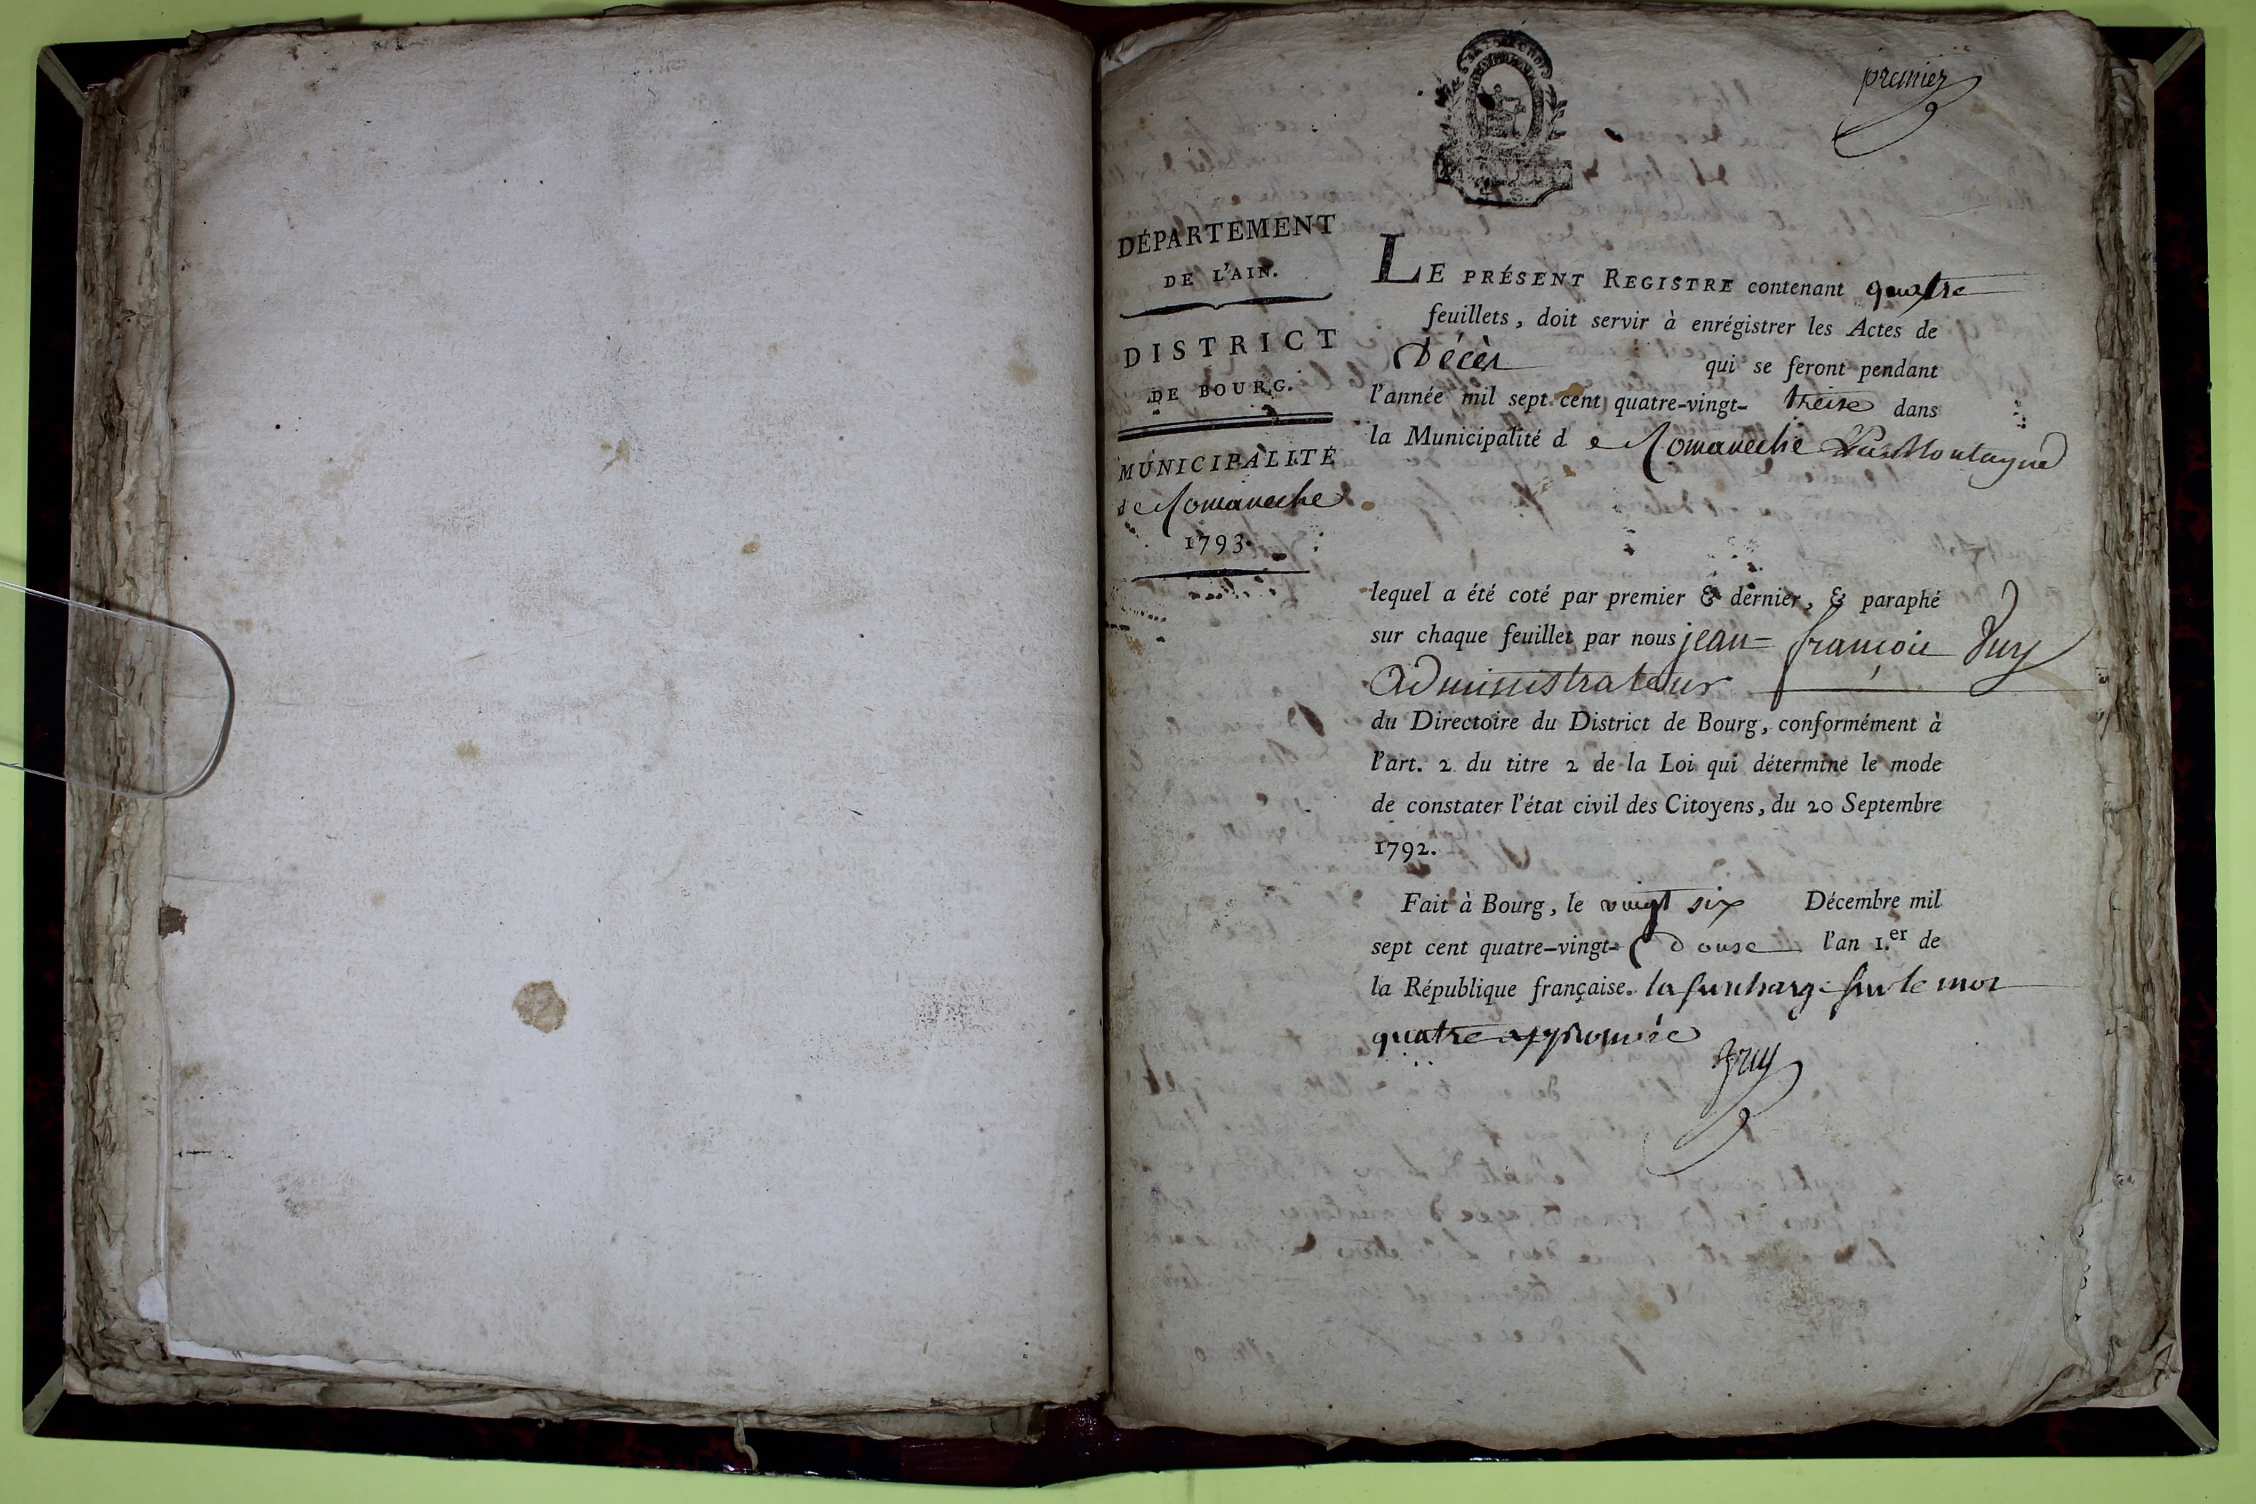 premier
DÉPARTEMENT
DE L'AIN.
DISTRICT
DE BOURG.
MUNICIPALITÉ
de Romaneche
1793.
LE PRÉSENT REGISTRE contenant quatre
feuillets, doit servir à enrégistrer les Actes de
Décès qui se feront pendant
l'année mil sept cent quatre-vingt- treise dans
la Municipalité d e Romaneche La Montagne
lequel a été coté par premier & dernier, & paraphé
sur chaque feuillet par nous jean= françois
administrateur
du Directoire du District de Bourg, conformément à
l'art. 2 du titre 2 de la Loi qui détermine le mode
de constater l'état civil des Citoyens, du 20 Septembre
1792.
Fait à Bourg, le vingt six Décembre mil
sept cent quatre-vingt- douse l'an 1.er de
la République française. la surcharge sur le mot
quatre approuvée